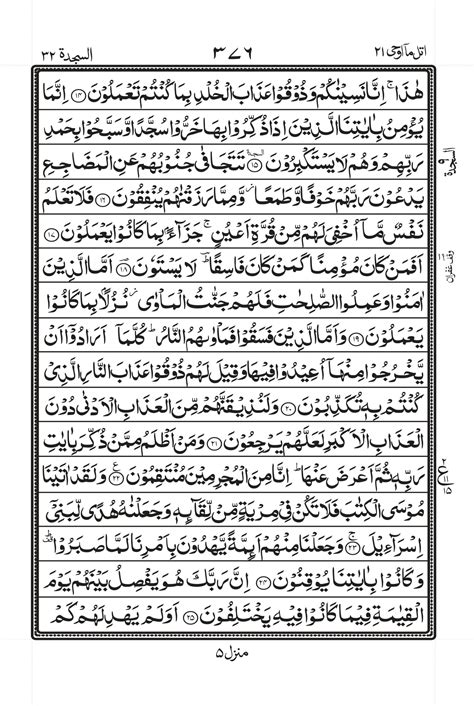 اتل ماۤاوحی ۲۱
۳۷۶
السجدة ۳۲
هٰذَا ۚ اِنَّا نَسِيْنٰكُمْ وَذُوْقُوْا عَذَابَ الْخُلْدِ بِمَا كُنْتُمْ تَعْمَلُوْنَ ۝۱۴ اِنَّمَا
يُؤْمِنُ بِاٰيٰتِنَا الَّذِيْنَ اِذَا ذُكِّرُوْا بِهَا خَرُّوْا سُجَّدًا وَّسَبَّحُوْا بِحَمْدِ
رَبِّهِمْ وَهُمْ لَا يَسْتَكْبِرُوْنَ ۝۱۵ تَتَجَافٰى جُنُوْبُهُمْ عَنِ الْمَضَاجِعِ
السجدة ۹
يَدْعُوْنَ رَبَّهُمْ خَوْفًا وَّطَمَعًا ؗ وَّمِمَّا رَزَقْنٰهُمْ يُنْفِقُوْنَ ۝۱۶ فَلَا تَعْلَمُ
نَفْسٌ مَّاۤ اُخْفِىَ لَهُمْ مِّنْ قُرَّةِ اَعْيُنٍ ۚ جَزَآءًۢ بِمَا كَانُوْا يَعْمَلُوْنَ ۝۱۷
اَفَمَنْ كَانَ مُؤْمِنًا كَمَنْ كَانَ فَاسِقًا ؔؕ لَا يَسْتَوٗنَ ۝۱۸ اَمَّا الَّذِيْنَ
وقف غفران
اٰمَنُوْا وَعَمِلُوا الصّٰلِحٰتِ فَلَهُمْ جَنّٰتُ الْمَاْوٰى ؗ نُزُلًۢا بِمَا كَانُوْا
يَعْمَلُوْنَ ۝۱۹ وَاَمَّا الَّذِيْنَ فَسَقُوْا فَمَاْوٰىهُمُ النَّارُ ؕ كُلَّمَاۤ اَرَادُوْۤا اَنْ
يَّخْرُجُوْا مِنْهَاۤ اُعِيْدُوْا فِيْهَا وَقِيْلَ لَهُمْ ذُوْقُوْا عَذَابَ النَّارِ الَّذِىْ
كُنْتُمْ بِهٖ تُكَذِّبُوْنَ ۝۲۰ وَلَنُذِيْقَنَّهُمْ مِّنَ الْعَذَابِ الْاَدْنٰى دُوْنَ
الْعَذَابِ الْاَكْبَرِ لَعَلَّهُمْ يَرْجِعُوْنَ ۝۲۱ وَمَنْ اَظْلَمُ مِمَّنْ ذُكِّرَ بِاٰيٰتِ
رَبِّهٖ ثُمَّ اَعْرَضَ عَنْهَا ؕ اِنَّا مِنَ الْمُجْرِمِيْنَ مُنْتَقِمُوْنَ ۝۲۲ وَلَقَدْ اٰتَيْنَا
مُوْسَى الْكِتٰبَ فَلَا تَكُنْ فِىْ مِرْيَةٍ مِّنْ لِّقَآئِهٖ وَجَعَلْنٰهُ هُدًى لِّبَنِىْۤ
اِسْرَآءِيْلَ ۝۲۳ وَجَعَلْنَا مِنْهُمْ اَئِمَّةً يَّهْدُوْنَ بِاَمْرِنَا لَمَّا صَبَرُوْا ؕ
وَكَانُوْا بِاٰيٰتِنَا يُوْقِنُوْنَ ۝۲۴ اِنَّ رَبَّكَ هُوَ يَفْصِلُ بَيْنَهُمْ يَوْمَ
الْقِيٰمَةِ فِيْمَا كَانُوْا فِيْهِ يَخْتَلِفُوْنَ ۝۲۵ اَوَلَمْ يَهْدِ لَهُمْ كَمْ
منزل ۵